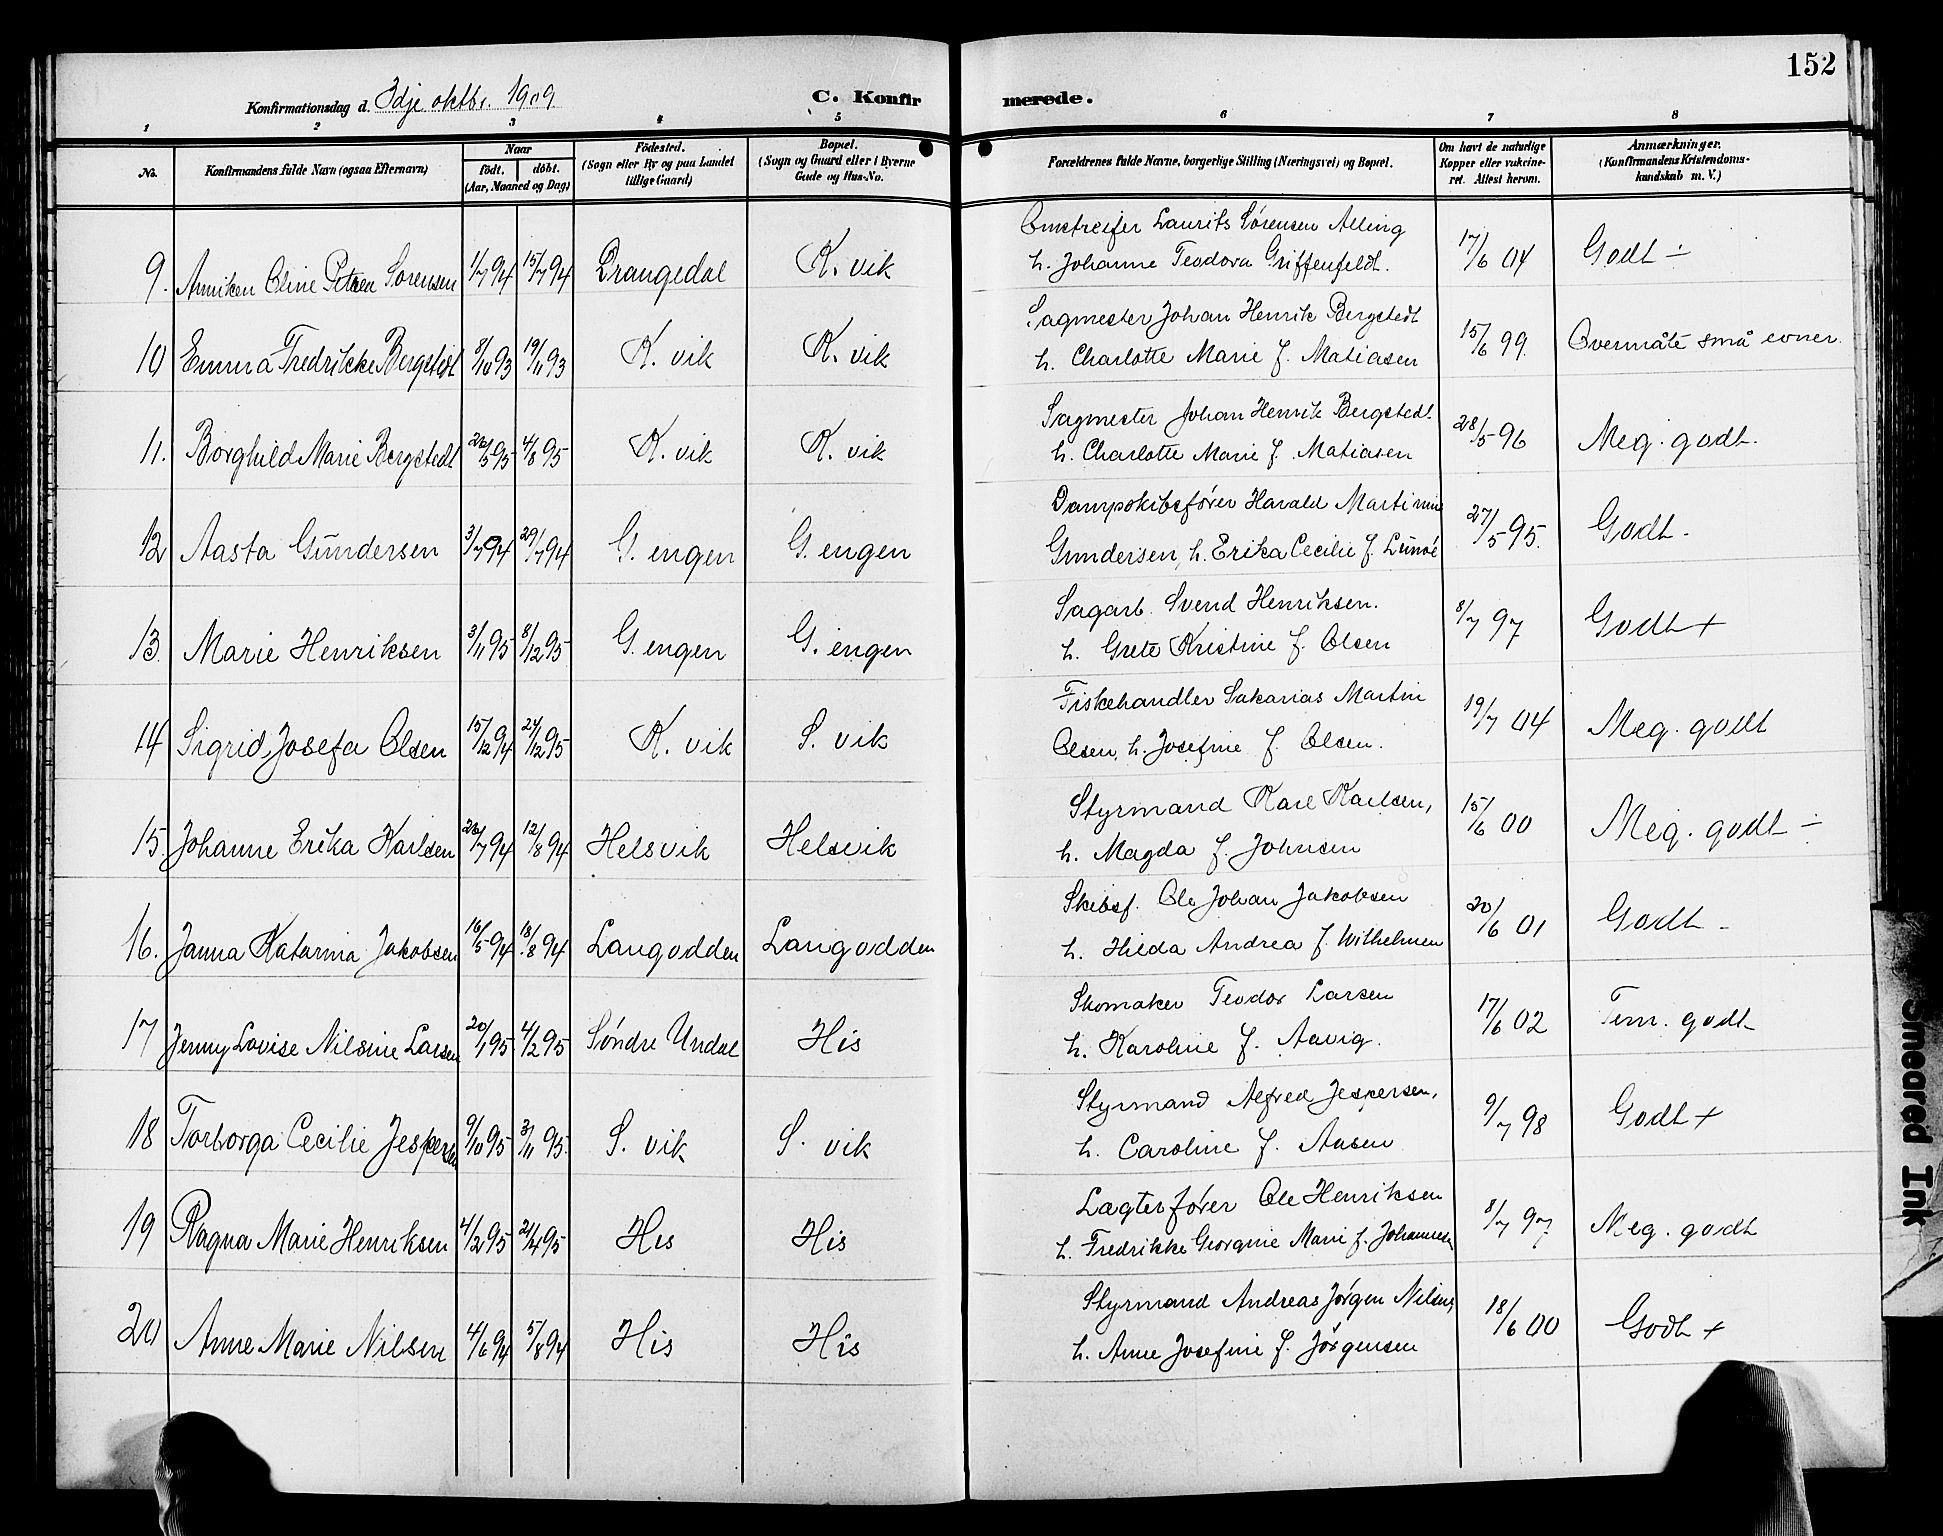 152
Konfirmationsdag d. 3dje oktbr. 1909
C. Konfir merede.
1 2 3 4 5 6 7 8
No. Konfirmandens fulde Navn (ogsaa Efternavn) Naar födt. döbt. (Aar, Maaned og Dag) Födested. (Sogn eller By og paa Landet tillige Gaard) Bopæl. (Sogn og Gaard eller i Byerne Gade og Hus-No. Forældrenes fulde Navne, borgerlige Stilling (Næringsvei) og Bopæl. Om havt de naturlige Kopper eller vakcineret. Attest herom. Anmærkninger. (Konfirmandens Kristendomskundskab m. V.)
Omstreifer Laurits Sörensen Alling
9. Anniken Oline Petrea Sorensen 1/7 94 15/7 94 Drangedal K. vik h. Johanne Teodora Griffenfeldt. 17/6 04 Godt ÷
Sagmester Johan Henrik Bergstedt
10 Emma Fredrikke Bergstedt 8/10 93 19/11 93 K. vik K. vik h. Charlotte Marie f. Matiasen 15/6 99. Overmåte små evner.
Sagmester Johan Henrik Bergstedt
11. Borghild Marie Bergstedt 26/5 95 4/8 95 K. vik K. vik h. Charlotte Marie f. Matiasen 28/5 96 Meg. godt.
Dampskibsfører Harald Martinius
12 Aasta Gundersen 3/7 94 29/7 94 G. engen G. engen Gundersen, h. Erika Cecilie f. Lunöe 27/5 95. Godt.
Sagarb. Svend Henriksen.
13. Marie Henriksen 3/11 95 8/12 95 G. engen G. engen h. Grete Kristine f. Olsen 8/7 97 Godt +
Fiskehandler Sakarias Martin
14 Sigrid Josefa Olsen 15/12 94 24/12 95 K. vik S. vik Olsen, h. Josefine f. Olsen. 19/7 04 Meg. godt
Styrmand Karl Karlsen,
15. Johanne Erika Karlsen 26/7 94 12/8 94 Helsvik Helsvik h. Magda f. Johnsen 15/6 00 Meg. godt ÷
Skibsf. Ole Johan Jakobsen
16. Janna Katarina Jakobsen 16/5 94 18/8 94 Langodden Langodden h. Hilda Andrea f. Wilhelmsen 20/6 01 Godt -
Skomaker Teodor Larsen
17 Jenny Lovise Nilsine Larsen 20/1 95 4/2 95 Søndre Undal His h. Karoline f. Aavig. 17/6 02 Tem. godt
Styrmand Alfred Jespersen,
18 Torborga Cecilie Jespersen 9/10 95 3/11 95. S. vik S. vik h. Caroline f. Aasen 9/7 98 Godt +
Lægterfører Ole Henriksen
19 Ragna Marie Henriksen 4/2 95 21/4 95 His His h. Fredrikke Georgine Marie f. Johannesen 8/7 97. Meg. godt
Styrmand Andreas Jørgen Nilsen,
20 Anne Marie Nilsen 4/6 94 5/8 94 His His h. Anne Josefine f. Jørgensen 18/6 00 Godt +
Smeared Ink